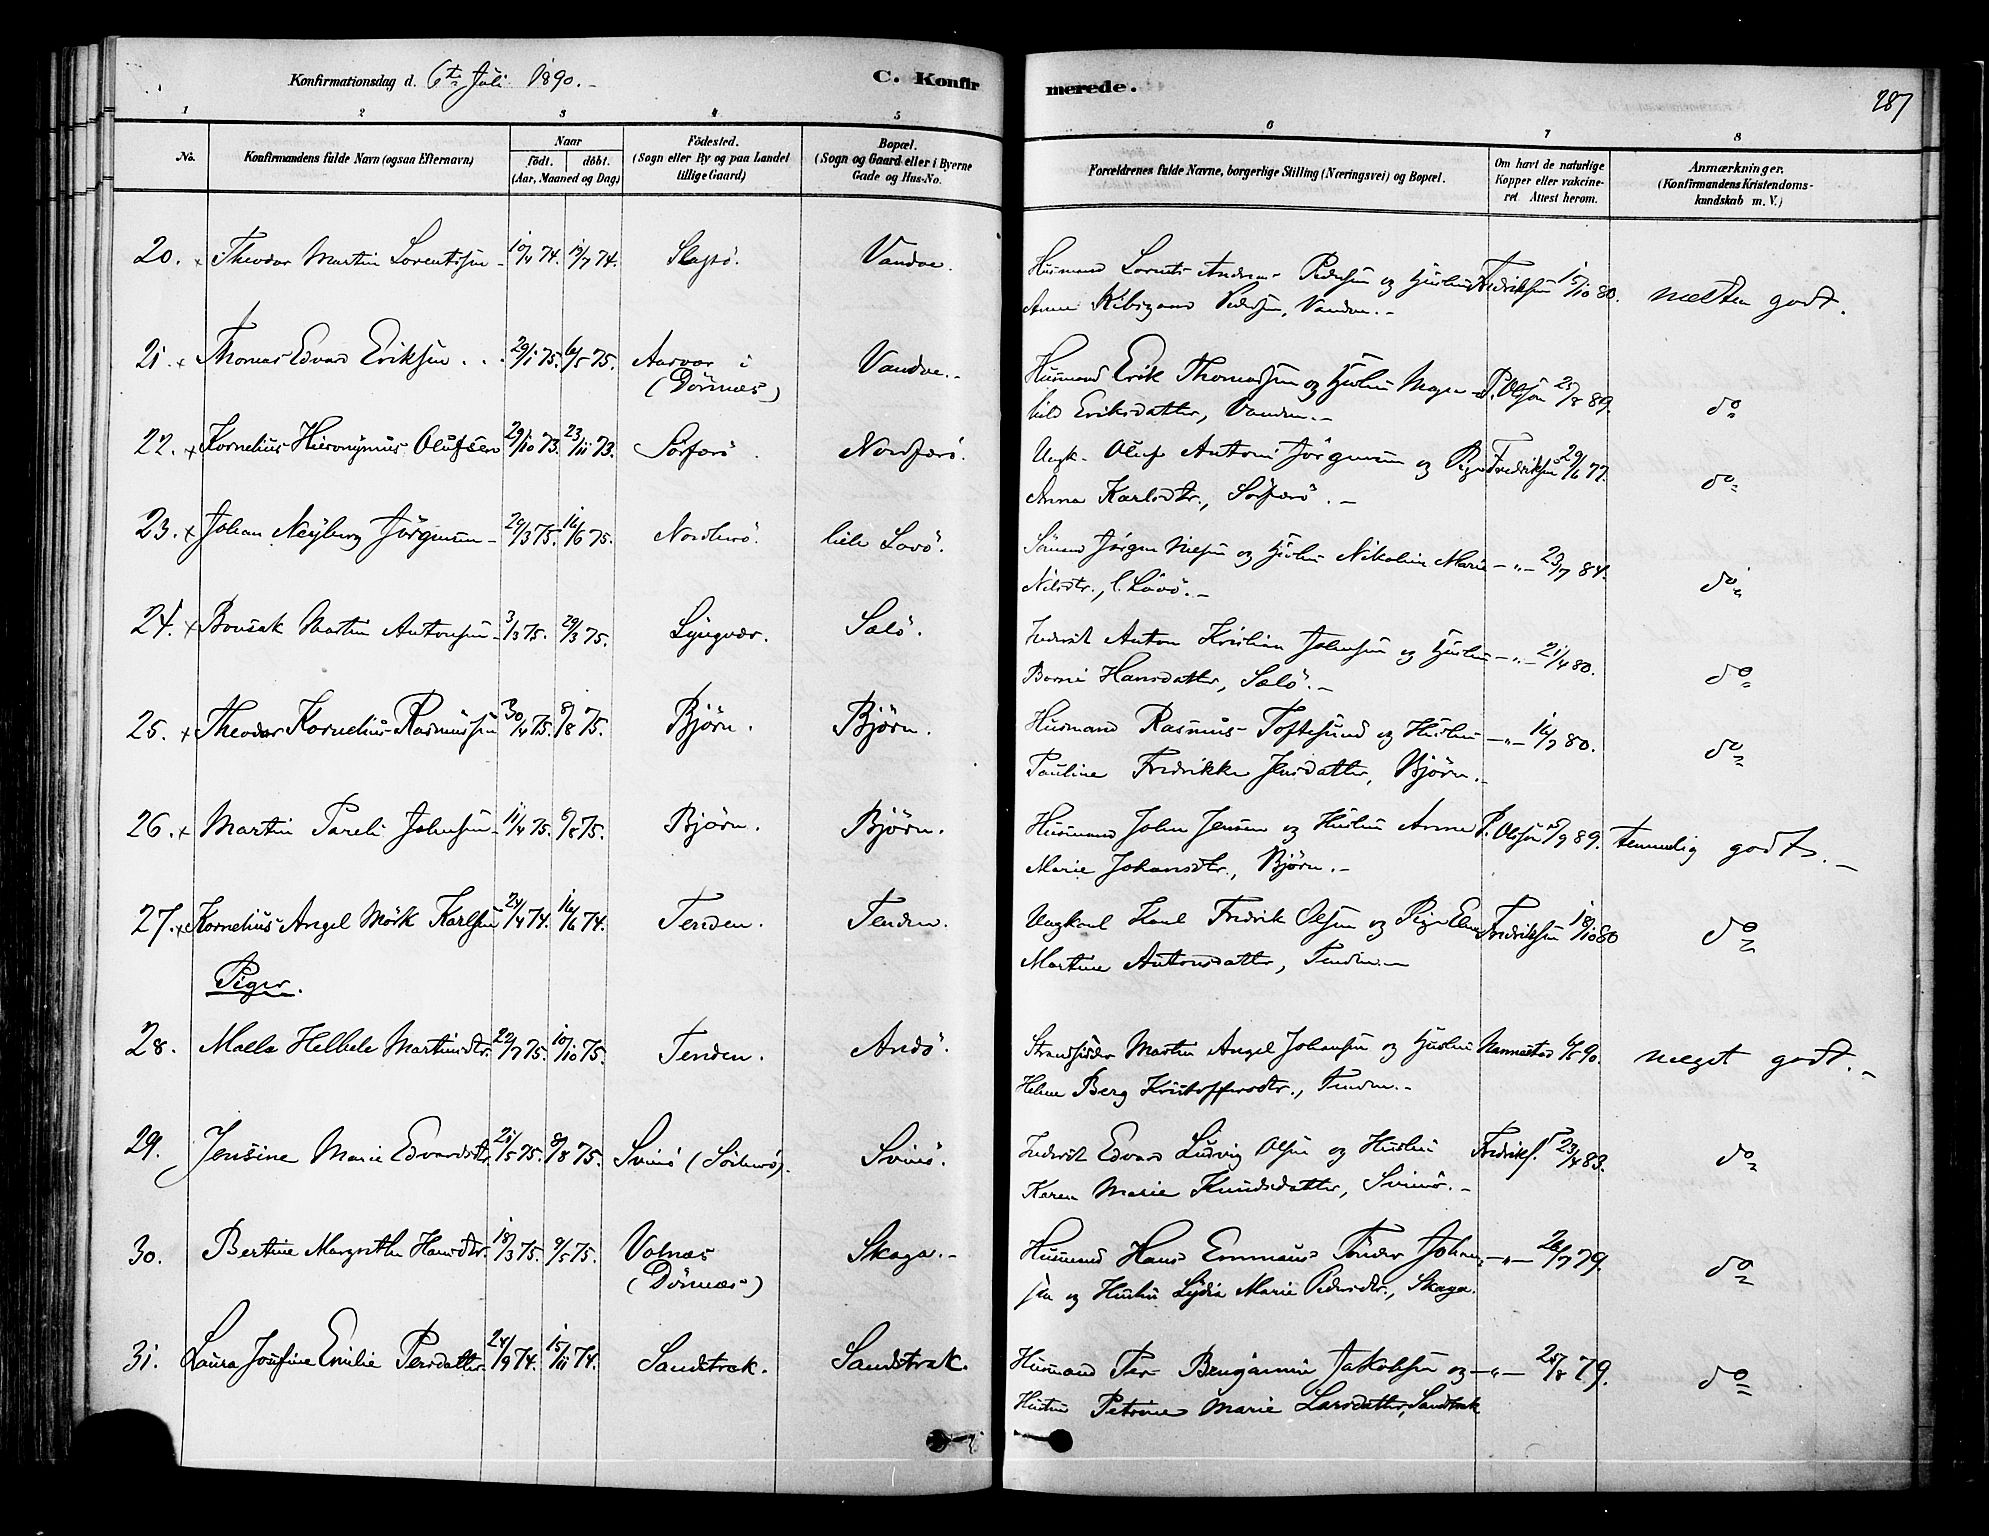 Konfirmationsdag d. 6te Juli 1890.-
C. Konfirmerede.
287
1 2 3 4 5 6 7 8
No.
Konfirmandens fulde Navn (ogsaa Efternavn)
Naar
födt. döbt.
(Aar, Maaned og Dag)
Födested.
(Sogn eller By og paa Landet
tillige Gaard)
Bopæl.
(Sogn og Gaard eller i Byerne
Gade og Hus-No.
Forældrenes fulde Navne, borgerlige Stilling (Næringsvei) og Bopæl.
Om havt de naturlige
Kopper eller vakcine-
ret Attest herom.
Anmærkninger.
(Konfirmandens Kristendoms-
kundskab m. V.)
20. x Theodor Martin Lorentsen - 10/4 74. 19/7 74. Slapö. Vandve. Husmand Lorents Andreas Pedersen og Hustru Fredriksen 15/10 80. næsten godt.
Anna Pedersen, Vandve.-
21. x Thomas Edvard Eriksen . . 29/1 75. 6/5 75. Aasvær i Vandve.- Husmand Erik Thomassen og Hustru Magn- P. Olsen 25/8 89. do
(Dönnæs) hild Eriksdatter, Vandve.-
22. x Kornelius Hieronymus Olufsen 29/10 73. 23/11 73. Sörfærö. Nordfærö. Ungk. Oluf Antoni Jörgensen og Pige Fredriksen 29/6 77. do
Anna Karlsdtr., Sörfærö.-
23. x Johan Neyberg Jörgensen - 29/3 75. 16/6 75. Nordherö. lille Lovö. Sömand Jörgen Nilsen og Hustru Nikoline Marie -"- 23/7 84. do
Nilsdtr., l. Lovö.-
24. x Bonsak Martin Antonsen - 3/3 75. 29/3 75. Lyngvær. Sælö. Inderst Anton Kristian Johnsen og Hustru -"- 21/4 80. do
Hansdatter, Sælö.-
25. x Theodor Kornelius Rasmussen 30/4 75. 8/8 75. Björn. Björn. Husmand Rasmus Toftesund og Hustru -"- 16/7 80. do
Pauline Fredrikke Jensdatter, Björn.-
26. x Martin Pareli Johnsen - 11/4 75. 8/8 75. Björn. Björn. Husmand John Jensen og Hustru Anne P. Olsen 15/9 89. temmelig godt.-
Marie Johansdtr., Björn.-
27. x Kornelius Angel Mörk Karlsen 24/4 74. 16/6 74. Tenden. Tenden. Ungkarl Karl Fredrik Olsen og Pige Elen Fredriksen 18/10 80 do
Martine Antonsdatter, Tenden.-
Piger.
28. Maela Helbele Martinsdtr. 22/7 75. 10/10 75. Tenden. Andö. Strandsidder Martin Angel Johansen og Hustru Nannestad 6/5 90. meget godt.-
Helene Berg Kristoffersdtr., Tenden.-
29. Jensine Marie Edvardsdtr. 21/5 75. 8/8 75. Svinö (Sörherö). Svinö. Inderst Edvard Ludvig Olsen og Hustru Fredriks. 23/4 83. do
Karen Marie Knudsdatter, Svinö.-
30. Bertine Margrethe Hansdtr. 18/3 75. 9/5 75. Valnæs Skaga.- Husmand Hans Emmaus Tönder Johan- -"- 26/7 79. do
(Dönnæs) sen og Hustru Lydia Marie Pedersdtr., Skaga.
31. Laura Josefine Emilie Persdatter. 24/9 74. 15/11 74. Sandstrak. Sandstrak. Husmand Per Benjamin Jakobsen og -"- 25/8 79. do
Hustru Petrine Marie Larsdatter, Sandstrak